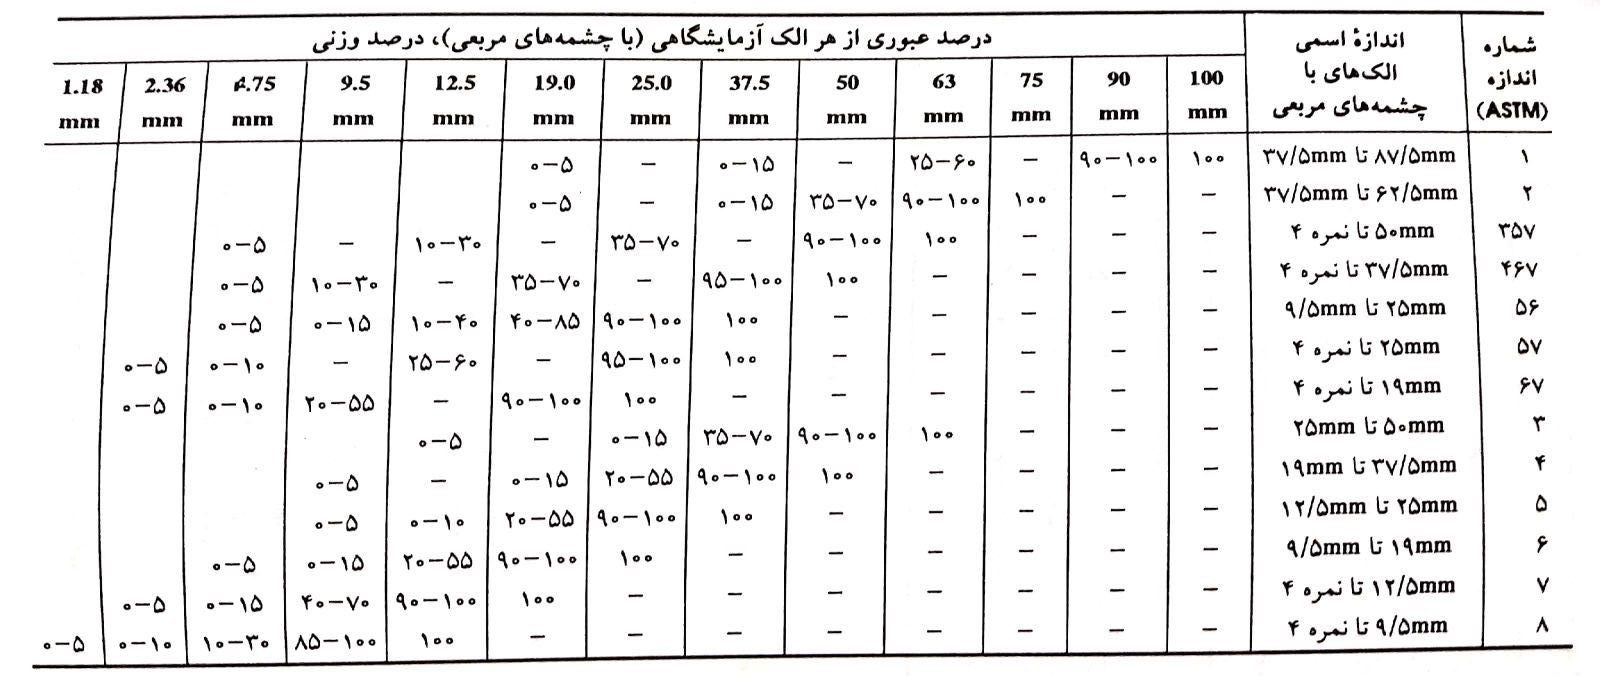 شماره اندازه (ASTM) | اندازهٔ اسمی الک‌های با چشمه‌های مربعی | درصد عبوری از هر الک آزمایشگاهی (با چشمه‌های مربعی)، درصد وزنی
100 mm | 90 mm | 75 mm | 63 mm | 50 mm | 37.5 mm | 25.0 mm | 19.0 mm | 12.5 mm | 9.5 mm | 4.75 mm | 2.36 mm | 1.18 mm
۱ | ۸۷/۵mm تا ۳۷/۵mm | ۱۰۰ | ۹۰–۱۰۰ | – | ۲۵–۶۰ | – | ۰–۱۵ | – | ۰–۵
۲ | ۶۲/۵mm تا ۳۷/۵mm | – | – | ۱۰۰ | ۹۰–۱۰۰ | ۳۵–۷۰ | ۰–۱۵ | – | ۰–۵
۳۵۷ | ۵۰mm تا نمره ۴ | – | – | – | ۱۰۰ | ۹۰–۱۰۰ | – | ۳۵–۷۰ | – | ۱۰–۳۰ | – | ۰–۵
۴۶۷ | ۳۷/۵mm تا نمره ۴ | – | – | – | – | ۱۰۰ | ۹۵–۱۰۰ | – | ۳۵–۷۰ | – | ۱۰–۳۰ | ۰–۵
۵۶ | ۲۵mm تا ۹/۵mm | – | – | – | – | – | ۱۰۰ | ۹۰–۱۰۰ | ۴۰–۸۵ | ۱۰–۴۰ | ۰–۱۵ | ۰–۵
۵۷ | ۲۵mm تا نمره ۴ | – | – | – | – | – | ۱۰۰ | ۹۵–۱۰۰ | – | ۲۵–۶۰ | – | ۰–۱۰ | ۰–۵
۶۷ | ۱۹mm تا نمره ۴ | – | – | – | – | – | – | ۱۰۰ | ۹۰–۱۰۰ | – | ۲۰–۵۵ | ۰–۱۰ | ۰–۵
۳ | ۵۰mm تا ۲۵mm | – | – | – | ۱۰۰ | ۹۰–۱۰۰ | ۳۵–۷۰ | ۰–۱۵ | – | ۰–۵
۴ | ۳۷/۵mm تا ۱۹mm | – | – | – | – | ۱۰۰ | ۹۰–۱۰۰ | ۲۰–۵۵ | ۰–۱۵ | – | ۰–۵
۵ | ۲۵mm تا ۱۲/۵mm | – | – | – | – | – | ۱۰۰ | ۹۰–۱۰۰ | ۲۰–۵۵ | ۰–۱۰ | ۰–۵
۶ | ۱۹mm تا ۹/۵mm | – | – | – | – | – | – | ۱۰۰ | ۹۰–۱۰۰ | ۲۰–۵۵ | ۰–۱۵ | ۰–۵
۷ | ۱۲/۵mm تا نمره ۴ | – | – | – | – | – | – | – | ۱۰۰ | ۹۰–۱۰۰ | ۴۰–۷۰ | ۰–۱۵ | ۰–۵
۸ | ۹/۵mm تا نمره ۴ | – | – | – | – | – | – | – | – | ۱۰۰ | ۸۵–۱۰۰ | ۱۰–۳۰ | ۰–۱۰ | ۰–۵